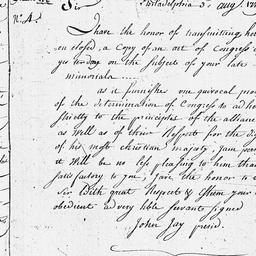 Philadelphia 3d Aug 17
Sir
No. 4.
I have the honor of transmiting, her
en closed, a Copy of an act of Congress
yesterday on the subject of your late
memorials
as it furnishes une quivocal proo
of the determination of Congress to adhe
strictly to the principles of the alliance
as Well as of their Respect for the dig
of his most christian majesty, I am pers
it Will be no less pleasing to him than
satisfactory to you, I have the honor to
Sir With great Respect & Esteem your
obedient and very hble servant signed
John Jay presid.